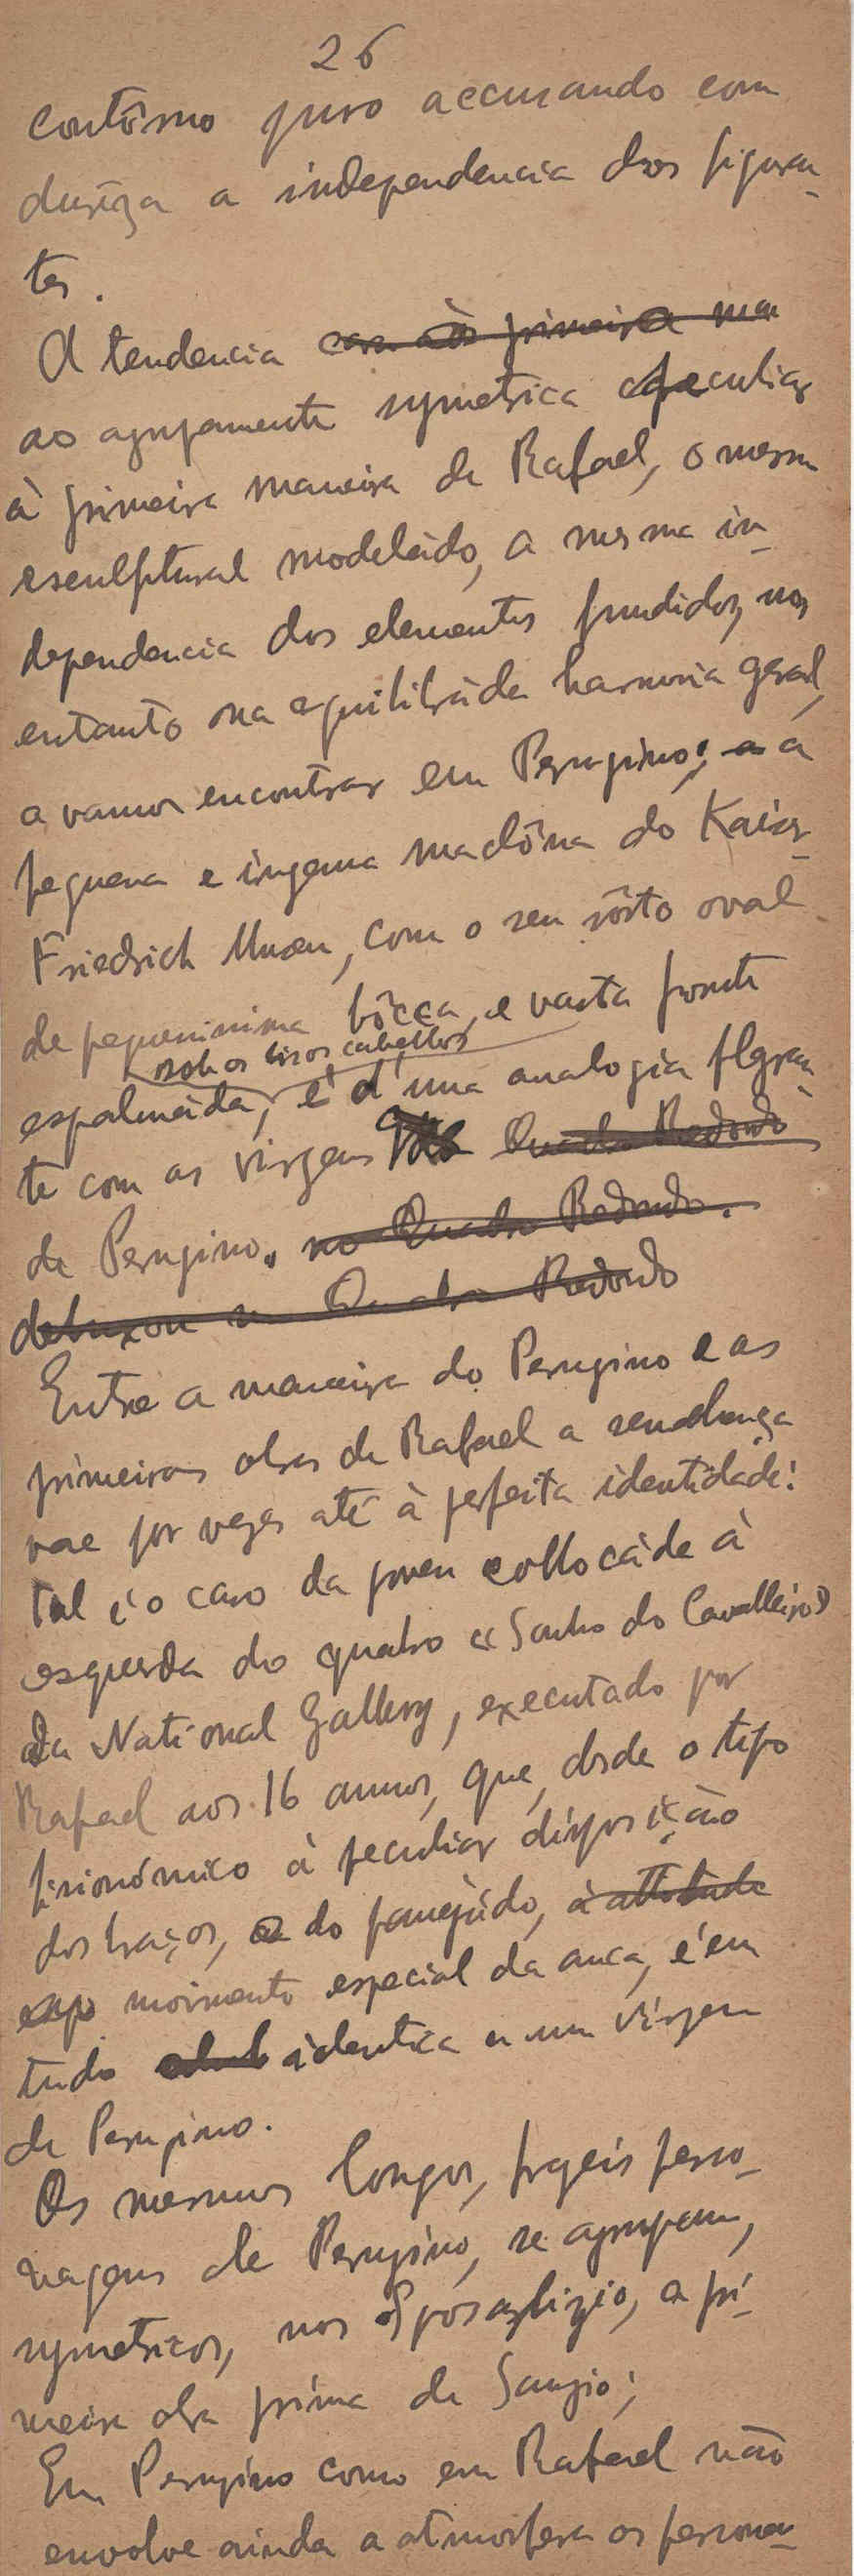 26
contôrno puro accusando com
durêza a independencia dos figuran-
tes.
A tendencia com às primeira ma
ao agrupamento symetrica peculiar
à primeira maneira de Rafael, o mesmo
esculptural modeládo, a mesma in-
dependencia dos elementos fundidos, no
entanto na equilibráda harmonia geral,
a vamos encontrar em Perugino; a
pequena e ingenua madôna do Kaiser-
Friedrich Museu, com o seu rôsto oval
de pequenissima bôcca, e vasta fronte
sob os lisos cabellos
espalmáda, é d'uma analogia flgran-
te com as virgens Quadro Redondo
de Perugino. no Quadro Redondo.
debuxou no Quadro Redondo
Entre a maneira do Perugino e as
primeiras obras de Rafael a semelhança
vae por vezes até à perfeita identidade:
tal é o caso da joven collocáda à
esquerda do quadro «Sonho do Cavalleiro»
da National Gallery, executado por
Rafael aos 16 annos, que, desde o tipo
fisionómico à peculiar disposição
dos braços, do panejádo, à attitude
movimento especial da anca, é em
tudo identica a uma virgem
de Perugino.
Os mesmos longos, frageis perso-
nagens de Perugino, se agrupam,
symetricos, nos Sposalizio, a pri-
meira obra prima de Sanzio;
Em Perugino como em Rafael não
envolve ainda a atmosfera os persona-